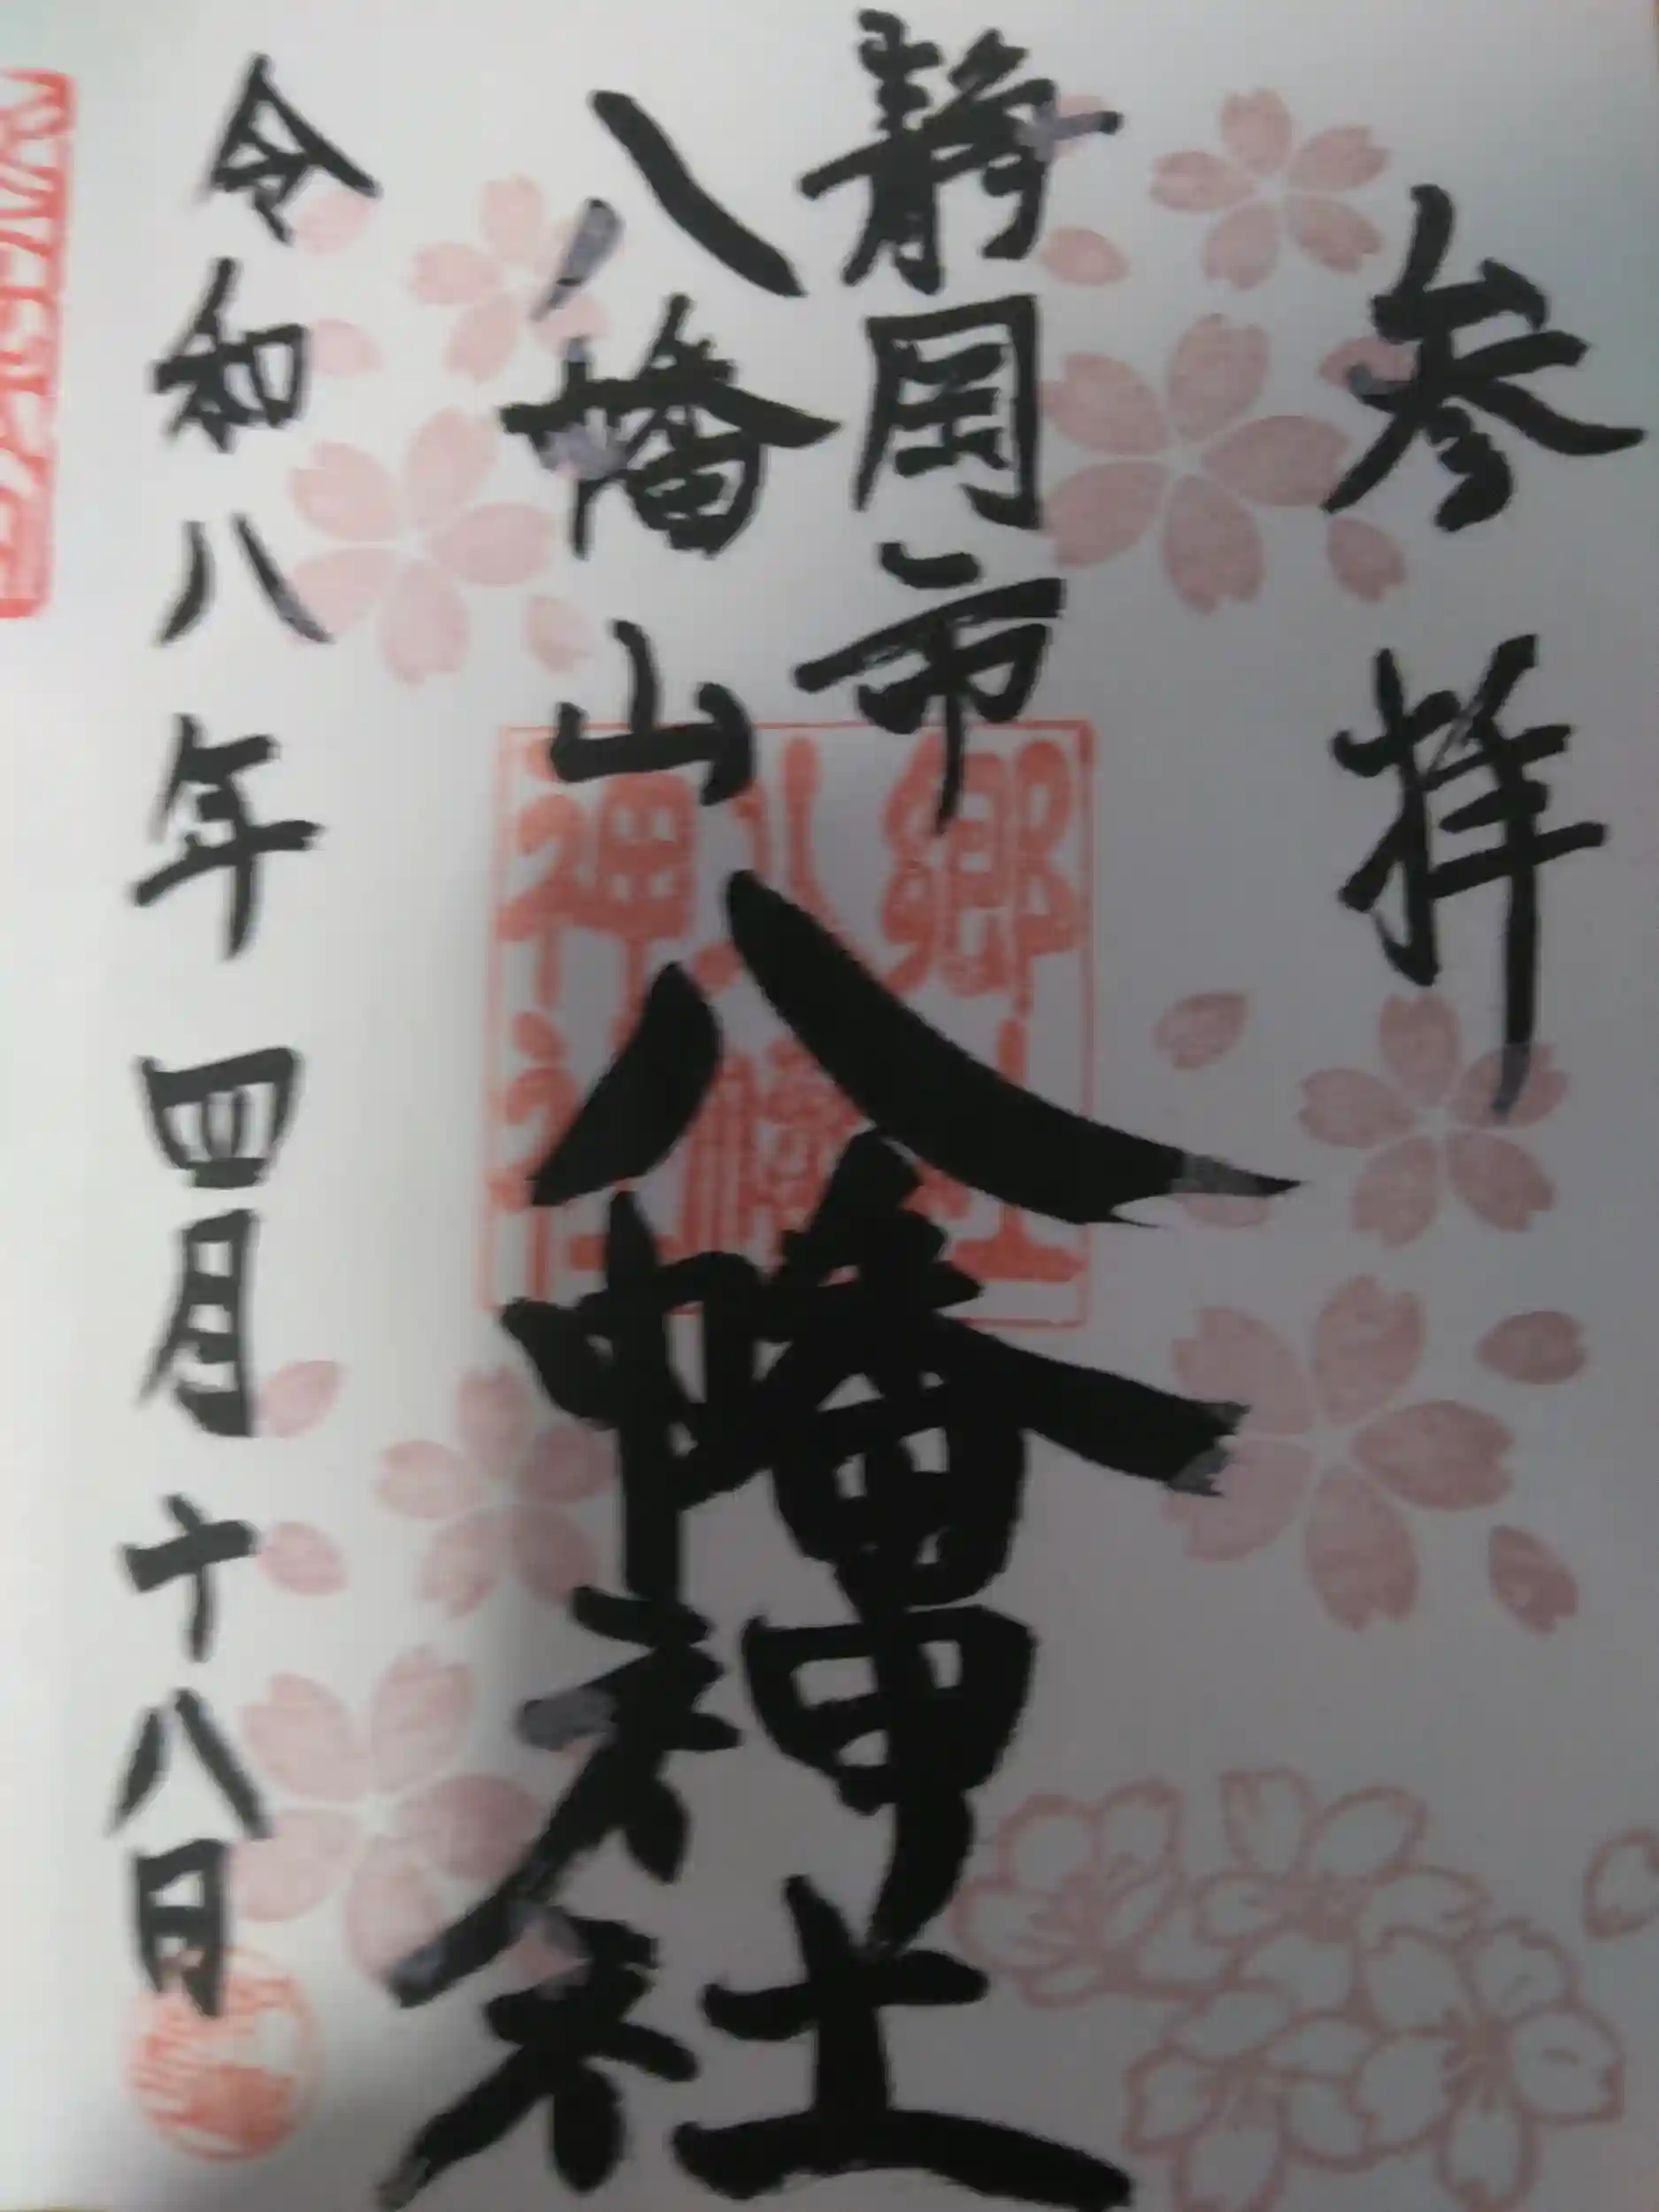 参拝
静岡市
八幡山
八幡神社
郷社
八幡
神社
令和八年四月十八日